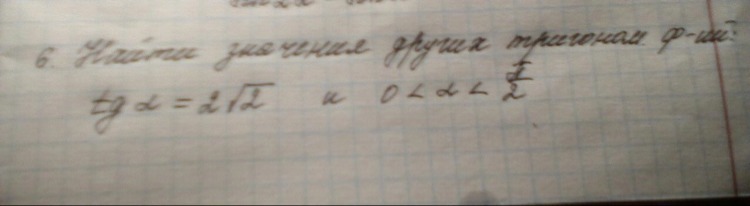 6. Найти значения других тригоном. ф-ий:
tg α = 2√2 и 0 < α < π/2